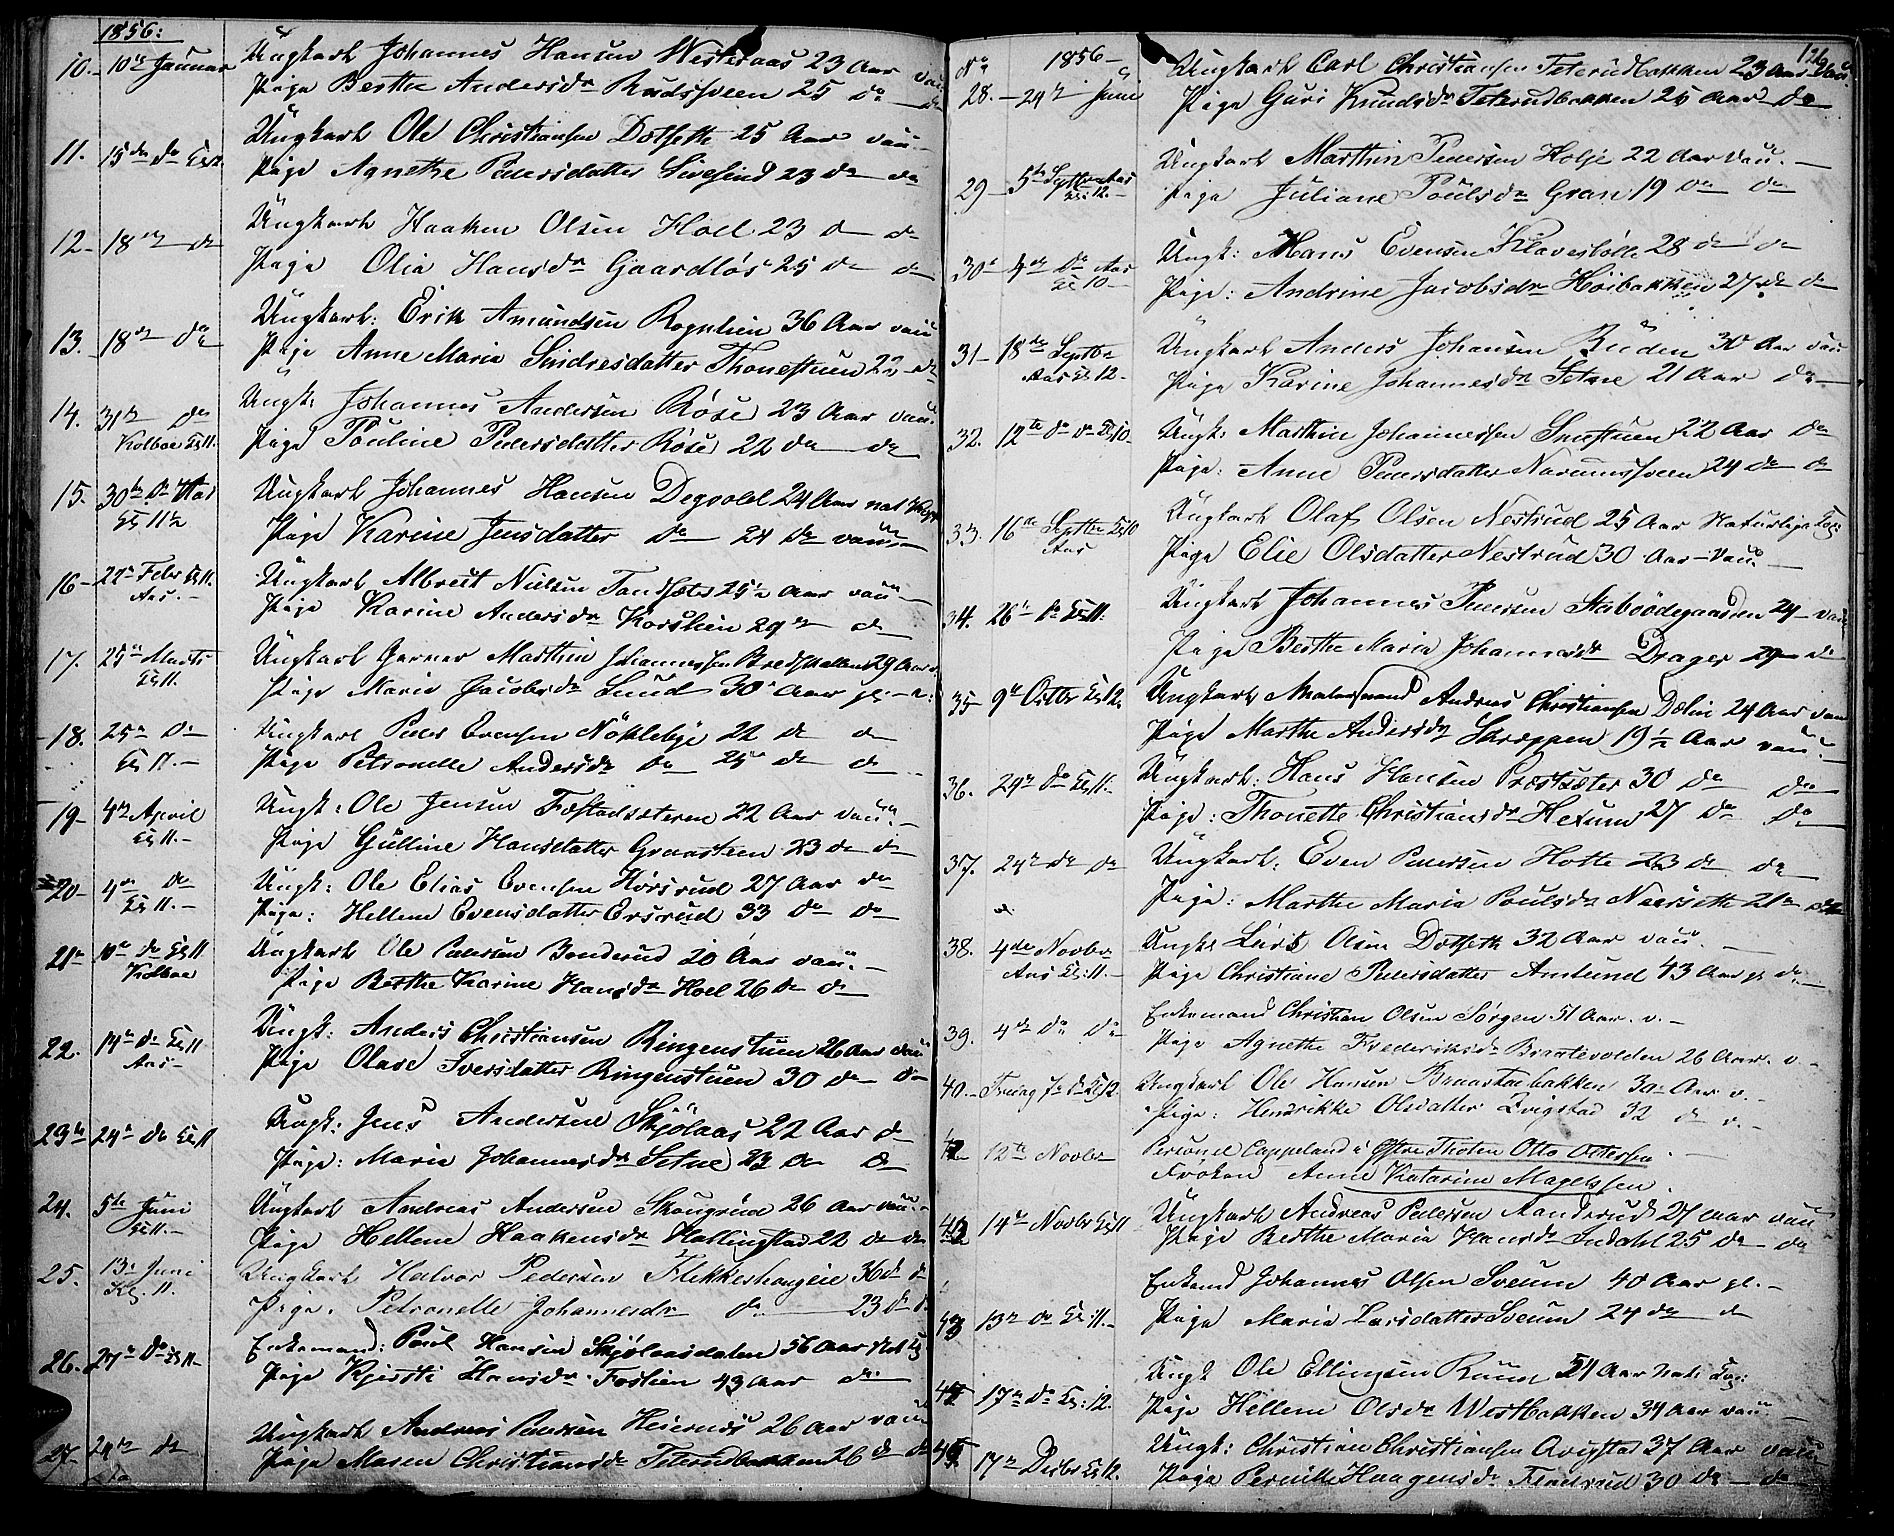 1856:
10. 10de Januar Ungkarl Johannes Hansen Westeraas 23 Aar vau.
Pige Berthe Andersdr Rudssveen 25 do do
11. 15de do Kl 11. Ungkarl Ole Christiansen Dotsette 25 Aar vau.
Pige Agnethe Pedersdatter Sivesind 23 do do
12 - 18de do Ungkarl Haaken Olsen Hoel 23 do do
Pige Olia Hansdr Gaardløs 25 do do
13. 18de do Ungkarl: Erik Amundsen Rognlien 36 Aar vau
Pige Anne Maria Sindresdatter Thonestuen 22 do
14. 31te do Ungk: Johannes Andersen Røise 23 Aar vau.
Kolboe Kl 11. Pige Pauline Pedersdatter Røise 22 do do
15. 30te do Aas Ungkarl Johannes Hansen Degvold 24 Aar nat Kop
Kl 11½ Pige Karine Jensdatter do 24 do vau
16 - 22de Febr Kl 11. Ungkarl Albret Nielsen 25½ Aar vau
Aas. - Pige Karine Andersdr Korslien 29 do
17. 25de Marts Ungkarl Garver Marthin Johannessen 29 Aar v.
Kl 11. Pige Maria Jacobsdr Lund 30 Aar gl. - v.
18. 25de do Ungkarl Peder Evensen Nöklebye 22 do do
Kl 11. - Pige Petronelle Andersdr do 25 do do
19 - 4de April Ungk: Ole Jensen Fæstadsæteren 22 Aar vau. -
Kl 11. - Pige Gulline Hansdatter Graasteen 23 do do
20 - 4de do Ungk: Ole Elias Evensen Hørsrud 27 Aar do
Kl 11. - Pige: Hellene Evensdatter Ersrud 33 do do
21 10de do Kl 11 Ungkarl Ole Pedersen Bonderud 20 Aar vau. -
Kolboe Pige Berthe Karine Hansdr Hoel 26 do do
22. 14de do Kl 11 Ungk: Anders Christiansen Ringenstuen 26 Aar vau
Aas - Pige Olave Iversdatter Ringenstuen 30 do do
23 24de do Kl 11 Ungk: Jens Andersen Skjölaas 22 Aar do
Pige: Maria Johannesdr Setne 23 do do
24. 5te Juni Ungkarl Andreas Andersen Skougrud 26 Aar vau. -
Kl 11. - Pige Hellene Haakensdr Hallingstad 22 do do
25. 13de Juni Ungkarl Halvor Pedersen Flekkeshaugeie 36 do do
Kl. 11. Pige. Petronelle Johannesdr do 23 do do
26. 27de do Kl 11 - Enkemand: Poul Hansen Skjølaasdalen 56 Aar nat K
Pige Kjersti Hansdr Foslien 43 Aar do
27 - 24de do Ungkarl Andreas Pedersen 26 Aar vau
Pige Maren Christiansdr Teterudbakken 26 do do
126
No 1856 - Ungkarl Carl Christiansen Teterudbakken 23 Aar vau.
28. - 24de Juni Pige Guri Knudsdr Teterudbakken 25 Aar do
29 - 5te Septbr Aas Ungkarl Marthin Pedersen Holje 22 Aar vau. -
Kl: 12. - Pige Juliane Poulsdr Gran 19 do do
30 4de do Aas Ungk: Hans Evensen Klavesbølle 28 do do
Kl 10 - Pige: Andrine Jacobsdr Høibakken 27 do do
31 - 18de Septbr Ungkarl Anders Johansen Ruden 30 Aar vau
Aas Kl 12 - Pige Karine Johannesdr Setne 21 Aar do -
32. 12te do do Kl 10 - Ungk: Marthin Johannessen Smestuen 22 Aar do
Pige: Anne Pedersdatter Narumssveen 24 do do
33. 16de Septbr Kl 10 Ungkarl Olaf Olsen Nestrud 25 Aar Naturlige Kop:
Aas Pige Elie Olsdatter Nestrud 30 Aar - vau. -
34. 26de do Kl 11: Ungkarl Johannes Pedersen Stabøödegaarden 24 - vau
Pige Berthe Maria Johannesdr Drager 29 do
35 - 9de Octbr Kl 12. Ungkarl Andreas Christiansen Dælin 24 Aar vau
Pige Marthe Andersdr Skreppen 19½ Aar vau. -
36. 29de do Kl 11. - Ungkarl: Hans Hansen Prestsæter 30 do do
Pige: Thonette Christiansdr Hexum 27 do do
37. 24de do do Ungkarl: Even Pedersen Hotte 23 do do
Pige: Marthe Maria Poulsdr Neersette 21 do
38. 4de Novbr Ungk: Lars Olsen Dotseth 32 Aar vau. -
Aas Kl: 11. - Pige Christiane Pedersdatter Amlund 43 Aar gl do
39. 4de do do Enkemand Christian Olsen Sørgen 51 Aar. v. -
Pige Agnethe Frederiksdr Braatevolden 26 Aar. v. -
40. - Fredag 7de do Kl 12. Ungkarl Ole Hansen Braastabakken 30 Aar v. -
Pige: Hendrikke Olsdatter Evigstad 32 do v. -
12te Novbr Personel Cappeland i Østre Thoten Otto Ottersen. -
Frøken Anne Katarine Magelssen.
42 14de Novbr Kl 11 Ungkarl Andreas Pedersen Aanderud 27 Aar vau
Pige Berthe Maria Hansdr Indahl 25 do do
Enkemd Johannes Olsen Sveum 40 Aar gl. -
43 13de do Kl: 11. - Pige Maria Larsdatter Sveum 24 do do
Ungk Ole Ellingsen Ruud 51 Aar nat. Kop:
17de do Kl: 12. Pige Hellene Olsdr Westbakken 34 Aar vau. -
Ungk: Christian Christiansen Qvigstad 37 Aar vau
17de Decbr Kl 12. Pige Pernille Haagensdr 30 do - do